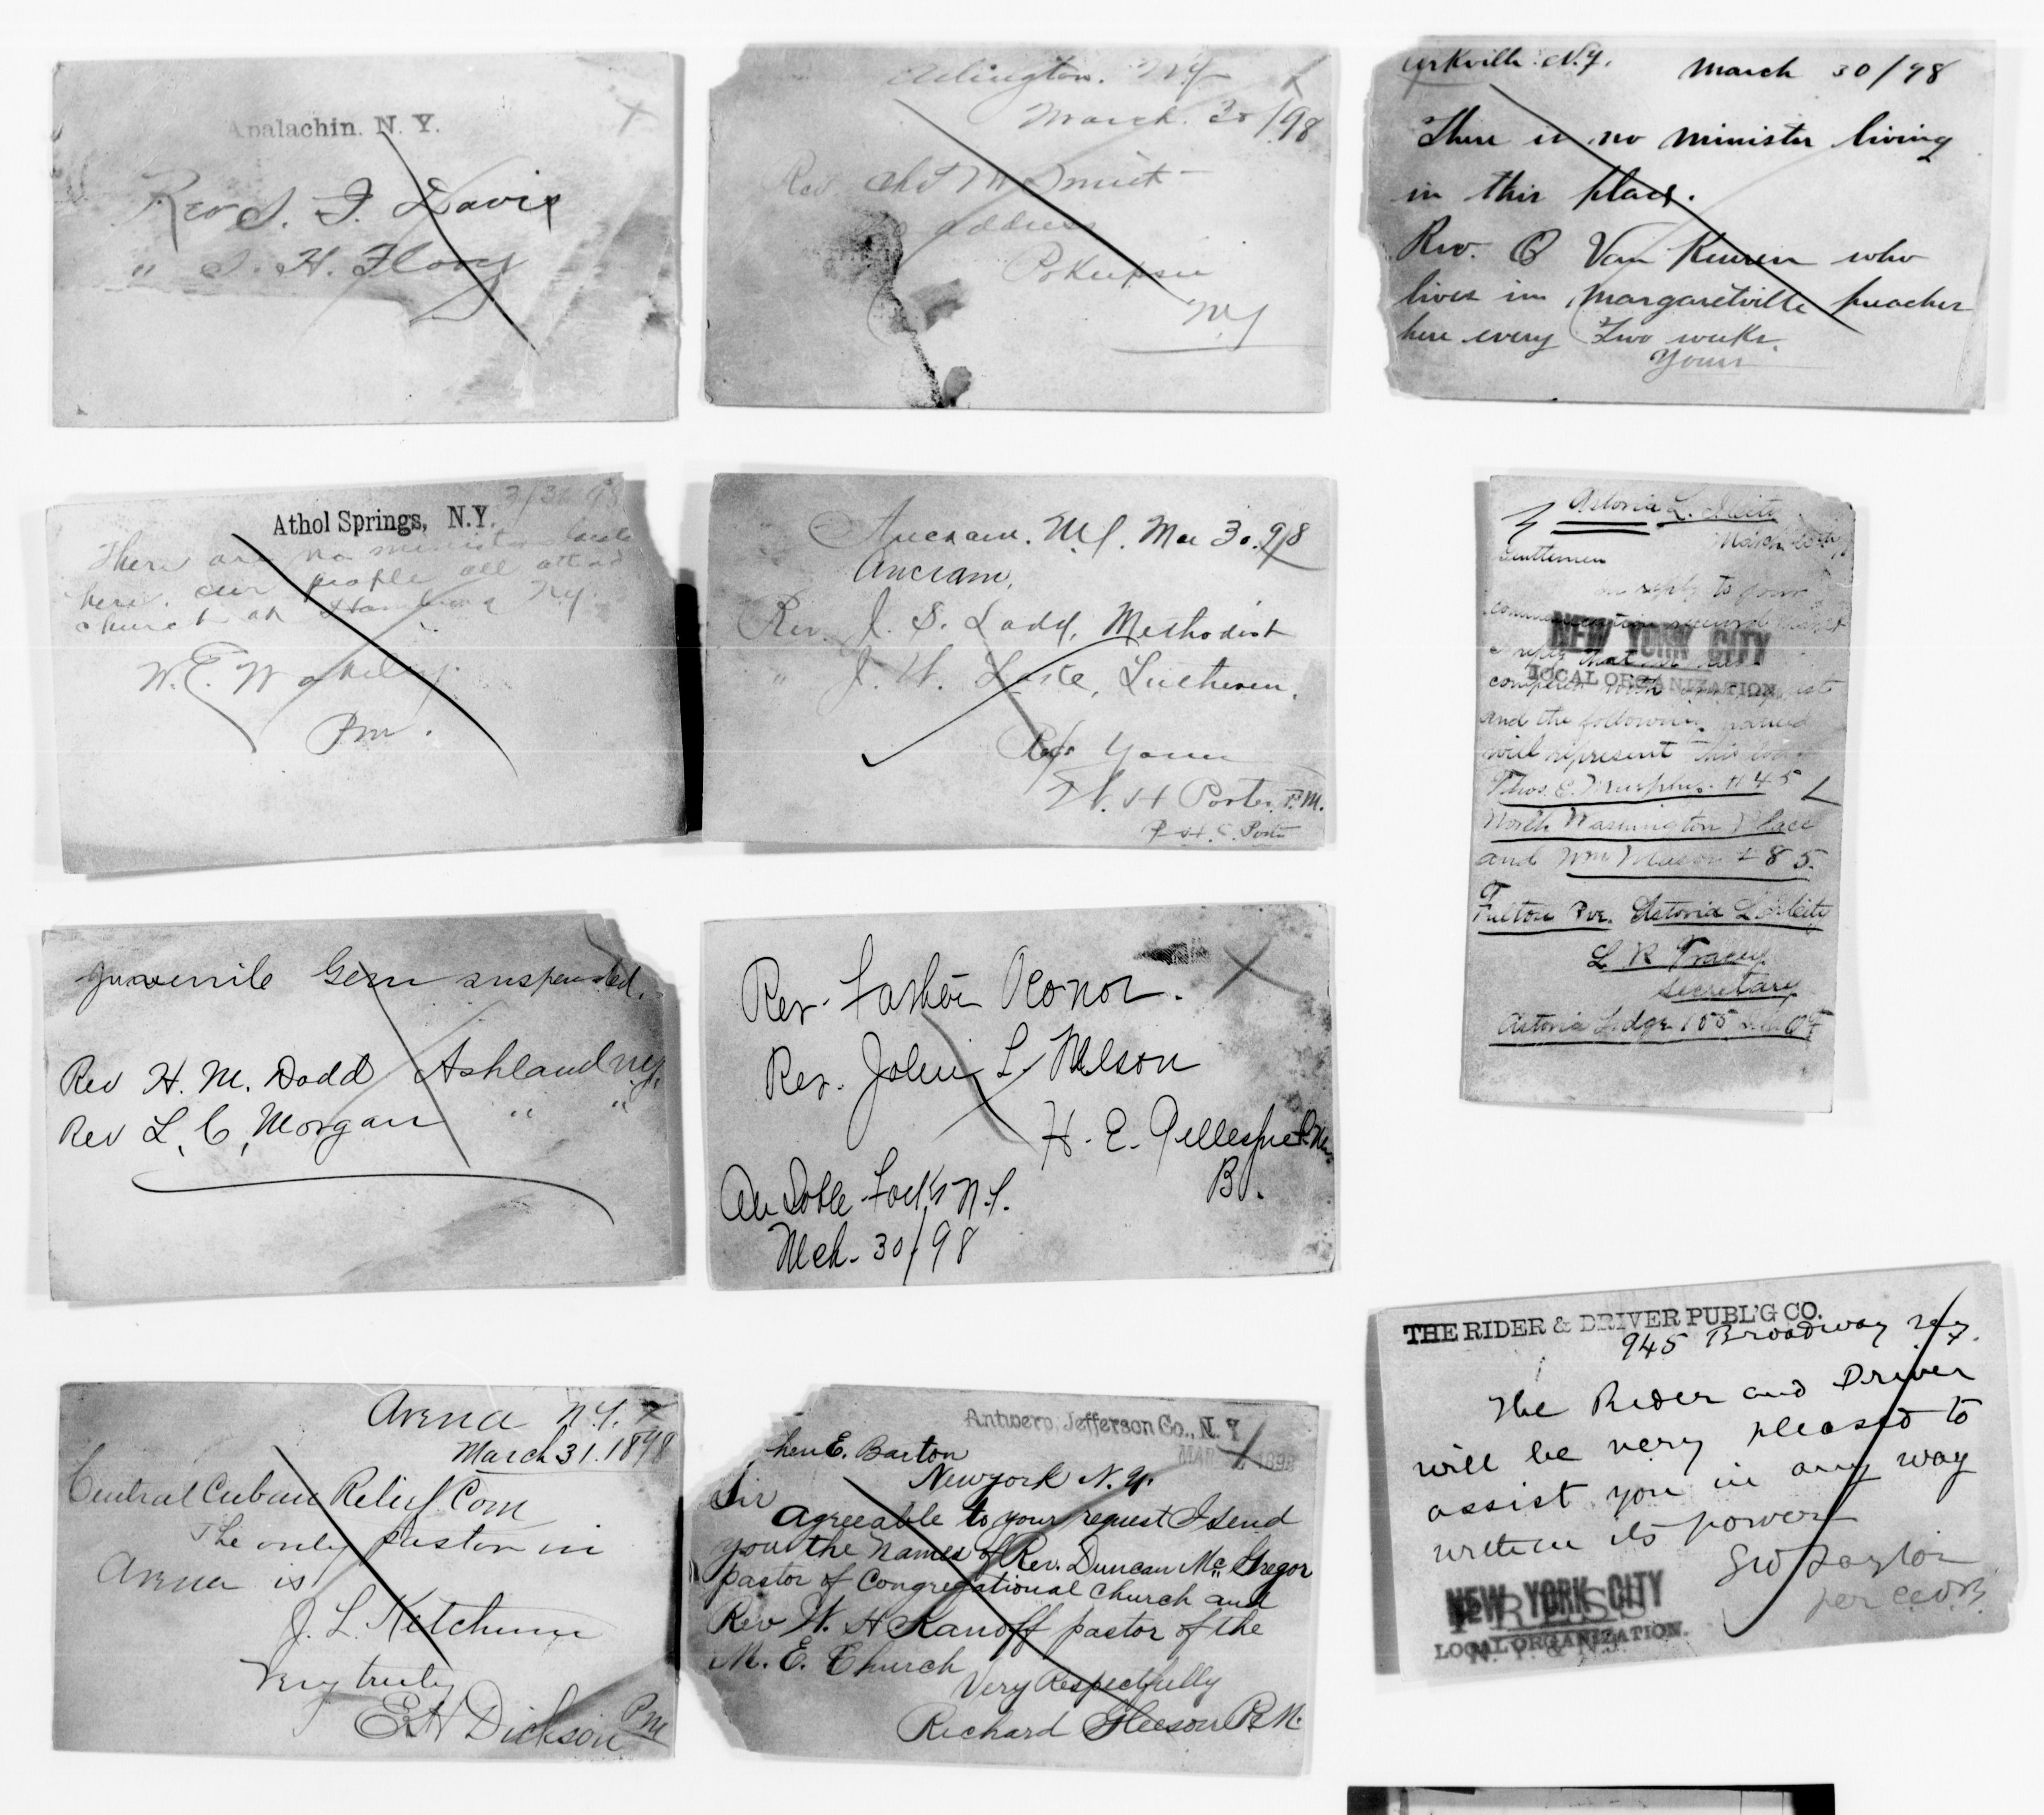 Apalachin, N. Y.
Rev S. F. Davis
" S. H.
Arlington. N.Y.
March. 30/98
Rev.
address
Po'Keepsie
N.Y.
Arkville. N.Y. March 30/98
There is no minister living
in this place.
Rev. O Van Keuren who
lives in Margaretville preaches
here every two weeks.
Yours
3/31/98
Athol Springs, N.Y.
There are no minister
here. our people all attend
church at Hamburg N.Y.
W. E.
P.m.
Ancram. N.Y. Mar 30. 98
Ancram,
Rev. J. S. Ladd, Methodist
" J. W. Lutheran.
Resp Yours
W. H Porter P.M.
Astoria L. I. City
March
Gentlemen
In reply to your
communication
NEW YORK CITY
LOCAL ORGANIZATION
I reply that
and the following named
will represent this
Thos. E. Murphy. # 45
North Washington Place
and Wm Mason # 85.
Fulton Ave. Astoria L. I. City
L R Tracey
Secretary
Astoria Lodge 155
Juvenile Gem suspended.
Rev H. M. Dodd Ashland NY.
Rev L. C. Morgan " "
Rev. Father Oconor.
Rev. John L. Nelson
H. E. Gillespie P.M.
B.
Au Sable Forks N.Y.
Mch. 30/98
Arena N.Y.
March 31. 1898
Central Cuban Relief Com
The only pastor in
Arena is
J. L. Ketchum
Very truly
E H Dickson PM
Antwerp, Jefferson Co., N. Y
MAR 1898
hen E. Barton
New York N. Y.
Sir
Agreeable to your request I send
you the names of Rev. Duncan Mc Gregor
pastor of Congregational Church and
Rev W. H Kanoff pastor of the
M. E. Church
Very Respectfully
Richard Gleeson P.M.
THE RIDER & DRIVER PUBL'G CO.
945 Broadway N.Y.
The Rider and Driver
will be very pleased to
assist you in any way
within its power
Taylor
per
NEW YORK CITY
PRESS
LOCAL ORGANIZATION.
N. Y. & N. J.